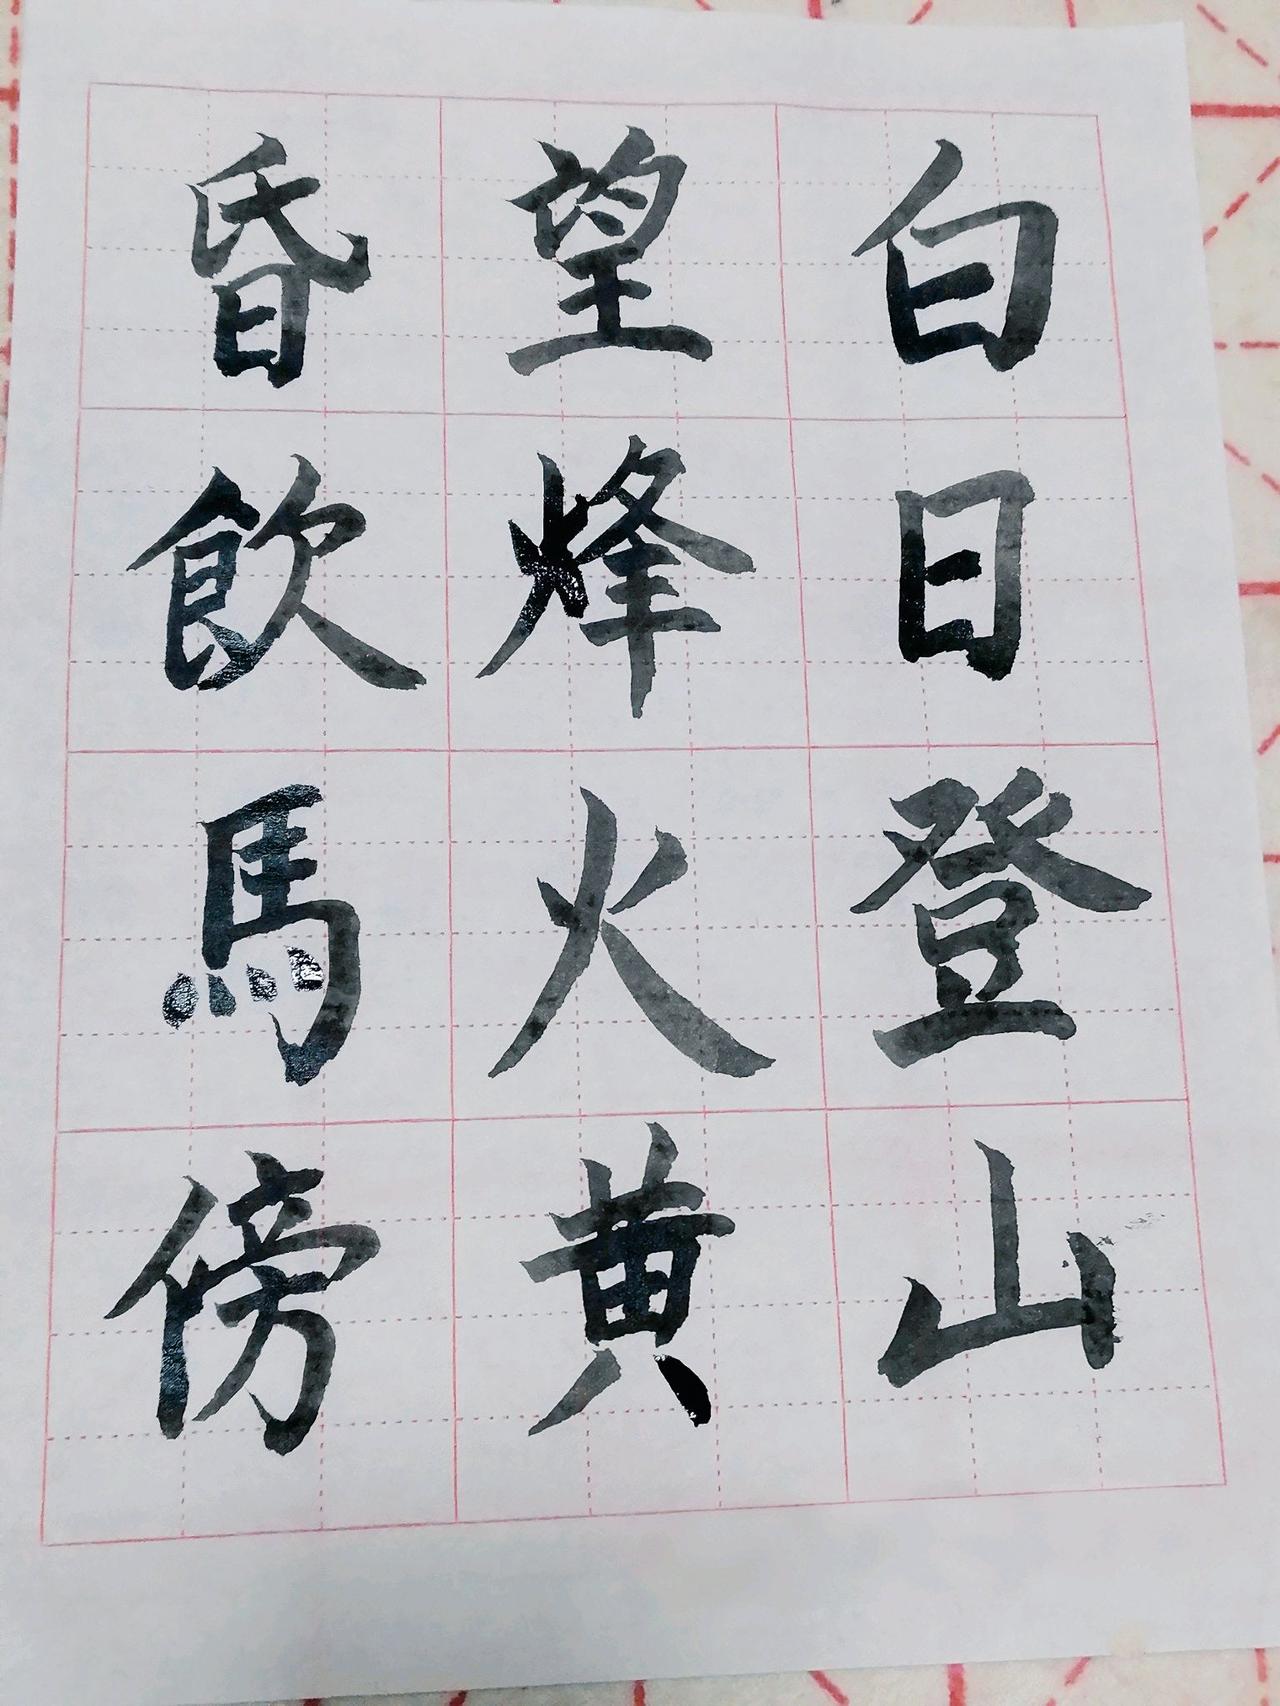 白日登山
望烽火黄
昏飲馬傍